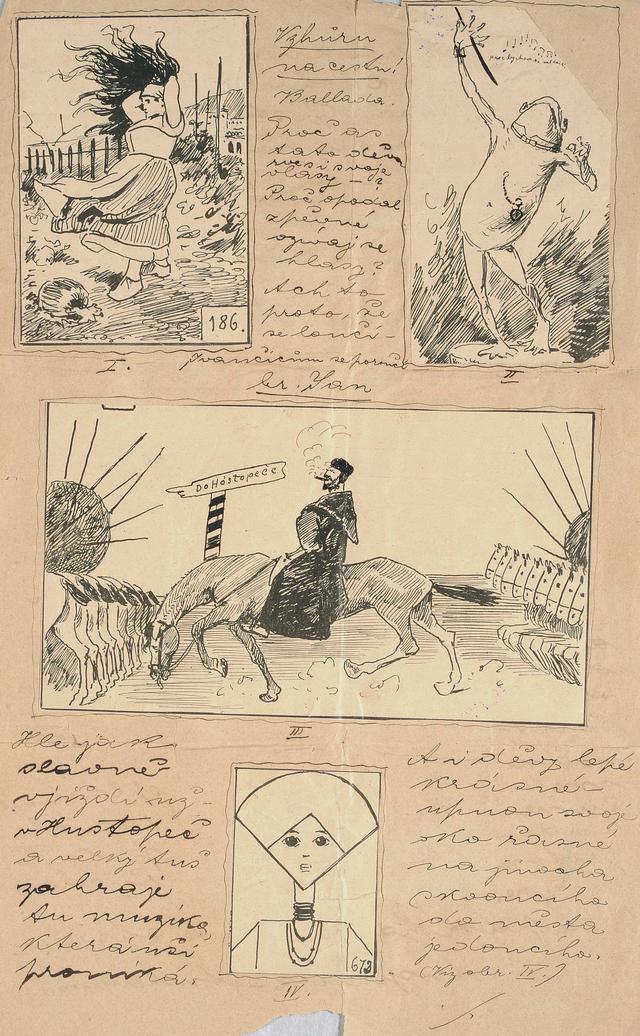 Vzhůru
na cestu!
Ballada.
Proč as
tato děva
rve si svoje
vlasy – ?
Proč opodal
zpěvné
ozývaj se
hlasy?
Ach to
proto, že
se loučí –
186.
I.
II
Ivančicům se poroučí
br. Jan
Do Hóstopeče
III
Hle jak
slavně
vjíždí už
v Hustopeč
a velký tuš
zahraje
tu muzika,
která uši
proniká.
672
IV.
A i děvy lepé
krásné
upnou svoje
oko řasné
na jinocha
skvoucího
do města
jedoucího.
(Viz obr. IV.)